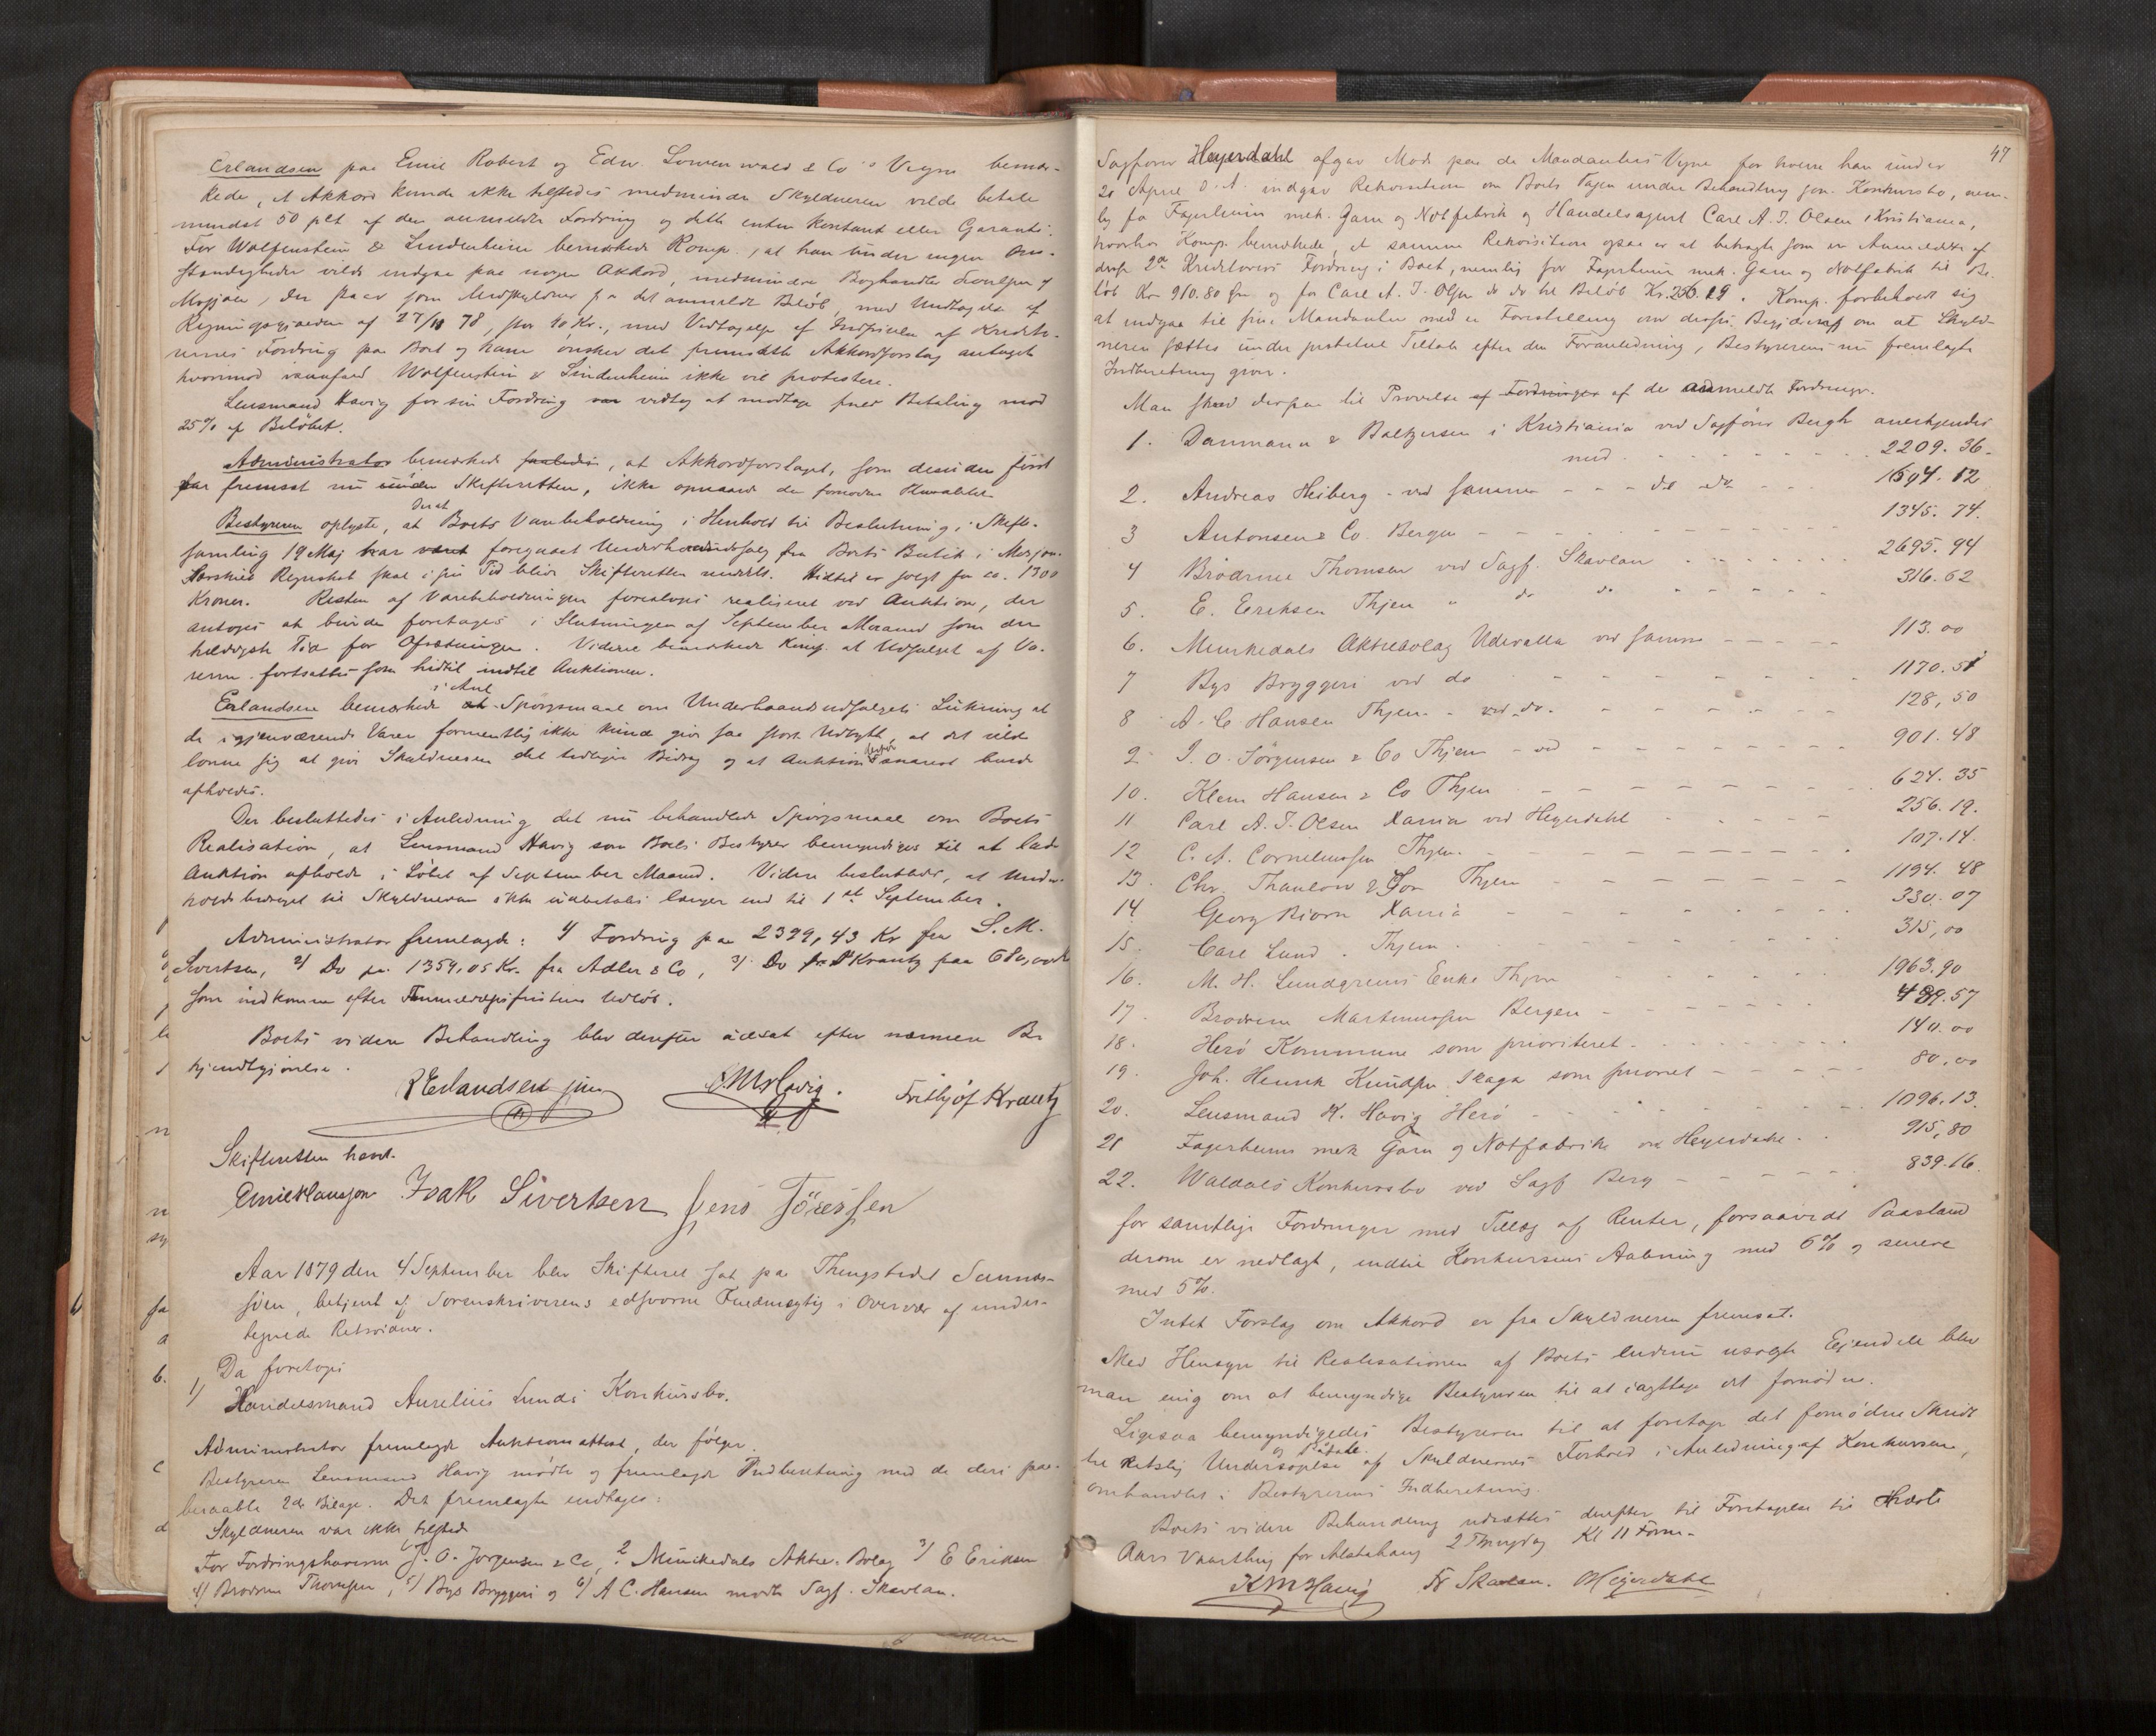 Erlandsen paa Emil Robert og Edw. Lowenwald & Co's Vegne bemær-
kede, at Akkord kunde ikke tilstedes medmindre Skyldneren vilde betale
mindst 50 pCt af den anmeldte Fordring og dette enten kontant eller Garanti.
For Wolfenstein & Lindenheim bemærkede Komp., at han under ingen Om-
stændigheder vilde indgaa paa nogen Akkord, medmindre Boghandler
Mosjøen, der staar som Medskyldner for det anmeldte Beløb, med Undtagelse af
27/11 78, stor 40 Kr., med Vedtagelse af Indfrielse af Kredito-
rernes Fordring paa Boet og kun ønsker det fremsatte Akkordforslag antaget
hvorimod Wolfenstein & Lindenheim ikke vil protestere.
Lensmand Havig for sin Fordring vedtog at modtage fuld Betaling med
25% af Beløbet.
Administrator bemærkede saaledes, at Akkordforslaget, som desuden først
fremsat nu under Skifteretten, ikke opnaaede den fornødne Pluralitet.
Bestyreren oplyste, at Boets Varebeholdning i Henhold til Beslutning i Skifte-
der at
samling 19 Maj har været foregaaet Underhaandssalg fra Boets Butik i Mosjøen.
Særskilt Regnskab skal i sin Tid blive Skifteretten meddelt. Hidtil er solgt for ca. 1300
Kroner. Resten af Varebeholdningen foreslages realiseret ved Auktion, der
antoges at burde foretages i Slutningen af September Maaned som den
heldigste Tid for Afsætningen. Videre bemærkede Komp. at Udsalget af Va-
rerne fortsattes som hidtil indtil Auktionen.
i Anl
Erlandsen bemærkede at Spørgsmaal om Underhaandsudsalgets Lukning at
de igjenværende Varer formentlig ikke kunde give saa stort Udbytte, at det vilde
lønne sig at give Skyldneren det tidligere Bidrag og at Auktion derfor snarest burde
afholdes.
Der besluttedes i Anledning det nu behandlede Spørgsmaal om Boets
Realisation, at Lensmand Havig som Boets Bestyrer bemyndiges til at lade
Auktion afholde i Løbet af September Maaned. Videre besluttedes, at Under-
holdsbidraget til Skyldneren ikke udbetales længer end til 1ste September.
Administrator fremlagde: 1/ Fordring paa 2399,43 Kr fra S. M.
Sivertsen, 2/ Do paa 1359,05 Kr. fra Adler & Co, 3/ Do fra Krantz paa
som indkomne efter Udløb.
Boets videre Behandling blev derefter udsat efter nærmere Be-
kjendtgjørelse.
R Erlandsen jun KM Havig. Frithjof Krantz
Skifteretten hævet.
Emil Hansson Isak Sivertsen Jens Töressen
Aar 1879 den 4 September blev Skifteret sat paa Thingstedet Sannæs-
sjøen, betjent af Sorenskriverens edsvorne Fuldmægtig i Overvær af under-
tegnede Retsvidner.
Da foretoges
1/ Handelsmand Aurelius Lunds Konkursbo.
Administrator fremlagde Auktionsattest, der følger.
Bestyreren Lensmand Havig mødte og fremlagde Indberetning med de deri paa-
beraabte 2de Bilage. Det fremlagte indtages:
Skyldneren var ikke tilstede
For Fordringshaverne J. O. Jørgensen & Co, 2 Munkedals Aktie-Bolag 3/ E Eriksen
4/ Brødrene Thomsen, 5/ Bys Bryggeri og 6/ A C. Hansen mødte Sagf. Skavlan.
47
Sagfører Heyerdahl afgav Møde paa de Mandanters Vegne for hvem han under
20 April d. A. indgav Rekvisition om Boets Tagen under Behandling som Konkursbo, nem-
lig for Fagerheim mek. Garn og Notfabrik og Handelsagent Carl A. J. Olsen i Kristiania,
hvorhos Komp. bemærkede, at samme Rekvisition ogsaa er at betragte som en Anmeldelse af
disse 2de Kreditorers Fordring i Boet, nemlig for Fagerheim mek. Garn og Notfabrik til Be-
løb Kr 910.80 Øre og for Carl A. J. Olsen do do til Beløb Kr. 256.19. Komp. forbeholdt sig
at indgaa til sine Mandanter med en Forestilling om disses Begjæring om at Skyld-
neren sættes under justitiel Tiltale efter den Foranledning, Bestyrerens nu fremlagte
Indberetning giver.
Man skred derpaa til Prøvelse af Fordringer af de anmeldte Fordringer.
1. Danmann & Baltzersen i Kristiania ved Sagfører Bergh anerkjendes
med 2209.36.
2. Andreas Heiberg - ved samme - - - do do 1694.12
3 Antonsen & Co. Bergen 1345.74.
4 Brødrene Thomsen ved Sagf. Skavlan 2695.94
5. E. Eriksen Thjem " do do 316.62
6. Munkedals Aktiebolag Udevalla ved samme 113.00
7 Bys Bryggeri ved do 1170.51
8 A. C. Hansen Thjem - ved do. 128,50
9 J. O. Jørgensen & Co Thjem - ved 901.48
10. Klem Hansen & Co Thjem 624.35
11 Carl A. J. Olsen Xania ved Heyerdahl 256.19.
12 C. A. Corneliussen Thjem. 107.14.
13. Chr. Thaulow & Søn Thjem 1194.48
14. Georg Bjørn Xania 330.07
15. Carl Lund. Thjem. 315,00
16. M. H. Lundgrens Enke Thjem 1963.90
17. Brødrene Martinussen Bergen 489.57
18. Herø Kommune som prioriteret 140.00
19. Joh. Henrik Knudsen Skaga som prioriet 80.00
20. Lensmand K. Havig Herø 1096.13.
21 Fagerheims mek Garn og Notfabrik ved Heyerdahl 915,80
22. Waldals Konkursbo ved Sagf Berg 839.16.
for samtlige Fordringer med Tillæg af Renter, forsaavidt Paastand
derom er nedlagt, indtil Konkursens Aabning med 6% og senere
med 5%.
Intet Forslag om Akkord er fra Skyldneren fremsat.
Med Hensyn til Realisationen af Boets endnu usolgte Eiendele blev
man enig om at bemyndige Bestyreren til at iagttage det fornødne.
Ligesaa bemyndigedes Bestyreren til at foretage det fornødne Skridt
og Påtale.
til retslig Undersøgelse af Skyldnerens Forhold i Anledning af Konkursen,
omhandlet i Bestyrerens Indberetning.
Boets videre Behandling udsættes derefter til Foretagelse til Næste
Aars Vaarthing for Alstahaug 2 Thingdag Kl 11 Form.
KM Havig Fr Skavlan. O Heyerdahl